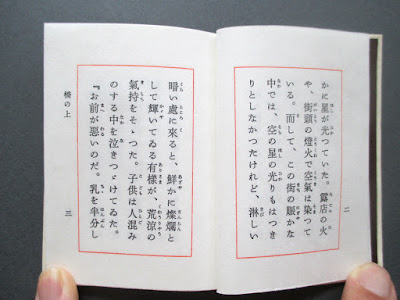 かに星が光つていた。露店の火
や、街頭の燈火で空氣は染つて
いる。而して、この街の賑かな
中では、空の星の光りもはつき
りとしなかつたけれど、淋しい
二
暗い處に來ると、鮮かに燦爛と
して輝いてゐる有樣が、荒涼の
氣持をそゝつた。子供は人混み
のする中を泣きつゞけてゐた。
『お前が惡いのだ。乳を半分し
橋の上
三